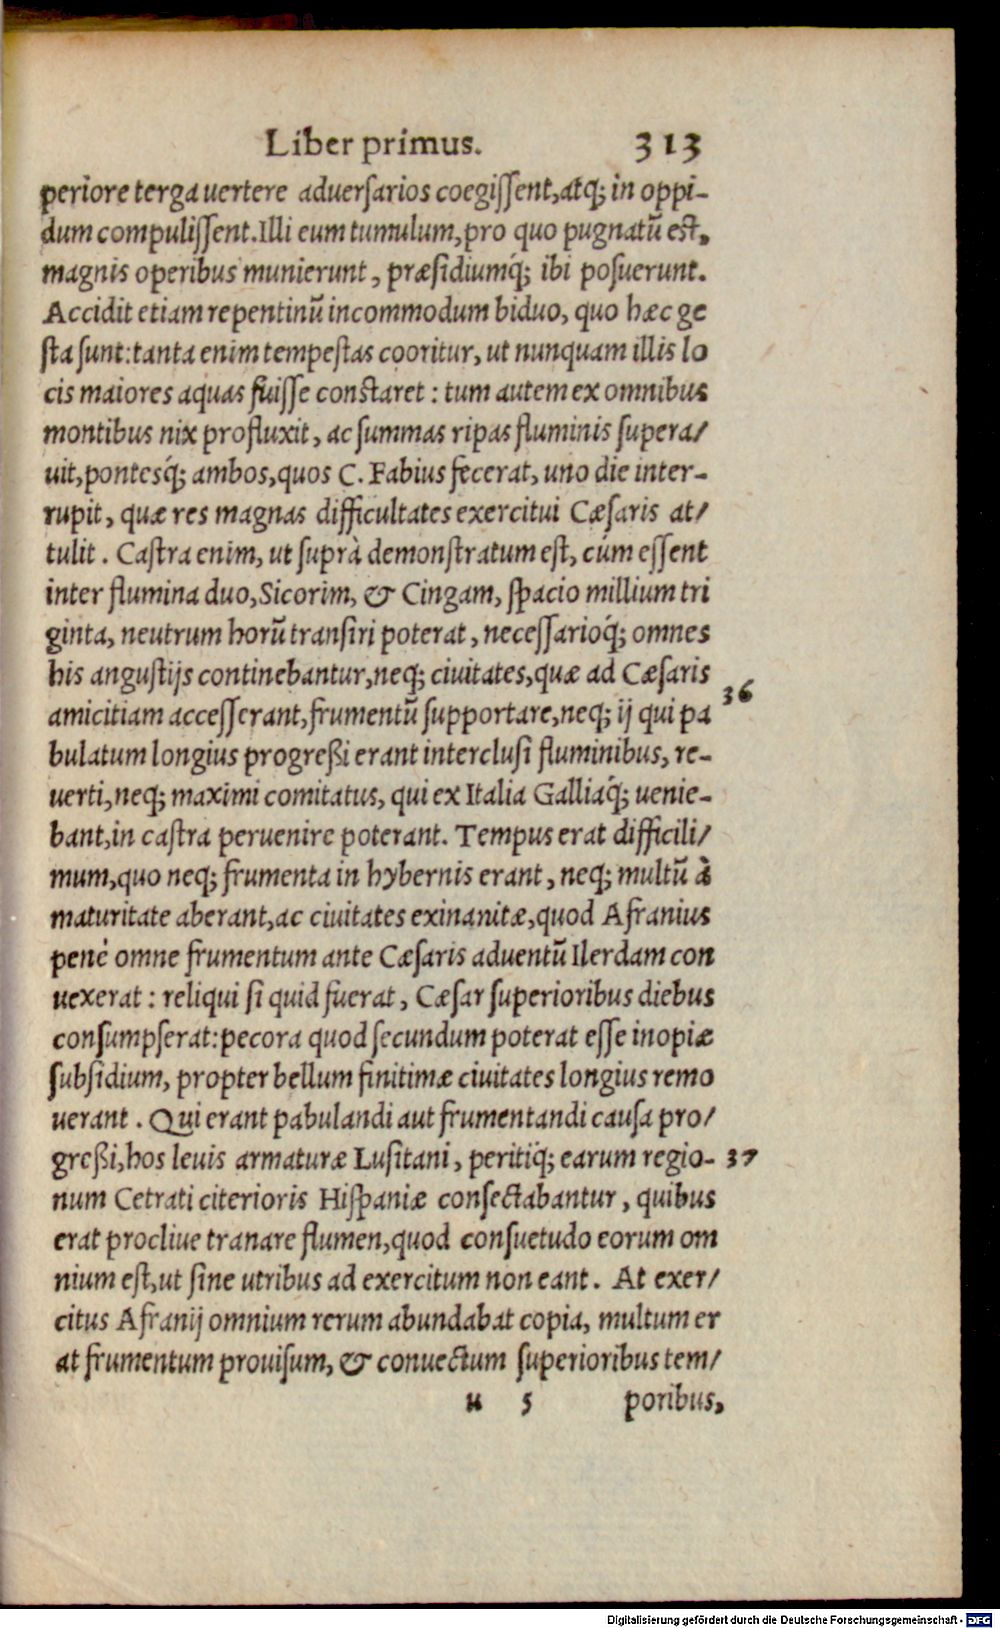 Liber primus. 313
periore terga vertere adversarios coegissent, atq; in oppi-
dum compulissent. Illi eum tumulum, pro quo pugnatũ est,
magnis operibus munierunt, præsidiumq́; ibi posuerunt.
Accidit etiam repentinũ incommodum biduo, quo hæc ge
sta sunt: tanta enim tempestas cooritur, ut nunquam illis lo
cis maiores aquas fuisse constaret: tum autem ex omnibus
montibus nix profluxit, ac summas ripas fluminis supera/
uit, pontesq́; ambos, quos C. Fabius fecerat, uno die inter-
rupit, quæ res magnas difficultates exercitui Cæsaris at/
tulit. Castra enim, ut suprà demonstratum est, cùm essent
inter flumina duo, Sicorim, & Cingam, spacio millium tri
ginta, neutrum horũ transiri poterat, necessarioq́; omnes
his angustijs continebantur, neq; ciuitates, quæ ad Cæsaris
36
amicitiam accesserant, frumentũ supportare, neq; ij qui pa
bulatum longius progreßi erant interclusi fluminibus, re-
uerti, neq; maximi comitatus, qui ex Italia Galliaq́; uenie-
bant, in castra peruenire poterant. Tempus erat difficili/
mum, quo neq; frumenta in hybernis erant, neq; multũ à
maturitate aberant, ac ciuitates exinanitæ, quod Afranius
penè omne frumentum ante Cæsaris aduentũ Ilerdam con
uexerat: reliqui si quid fuerat, Cæsar superioribus diebus
consumpserat: pecora quod secundum poterat esse inopiæ
subsidium, propter bellum finitimæ ciuitates longius remo
uerant. Qui erant pabulandi aut frumentandi causa pro/
greßi, hos leuis armaturæ Lusitani, peritiq̀; earum regio- 37
num Cetrati citerioris Hispaniæ consectabantur, quibus
erat procliue tranare flumen, quod consuetudo eorum om
nium est, ut sine utribus ad exercitum non eant. At exer/
citus Afranij omnium rerum abundabat copia, multum er
at frumentum prouisum, & conuectum superioribus tem/
u 5 poribus,
Digitalisierung gefördert durch die Deutsche Forschungsgemeinschaft - DFG